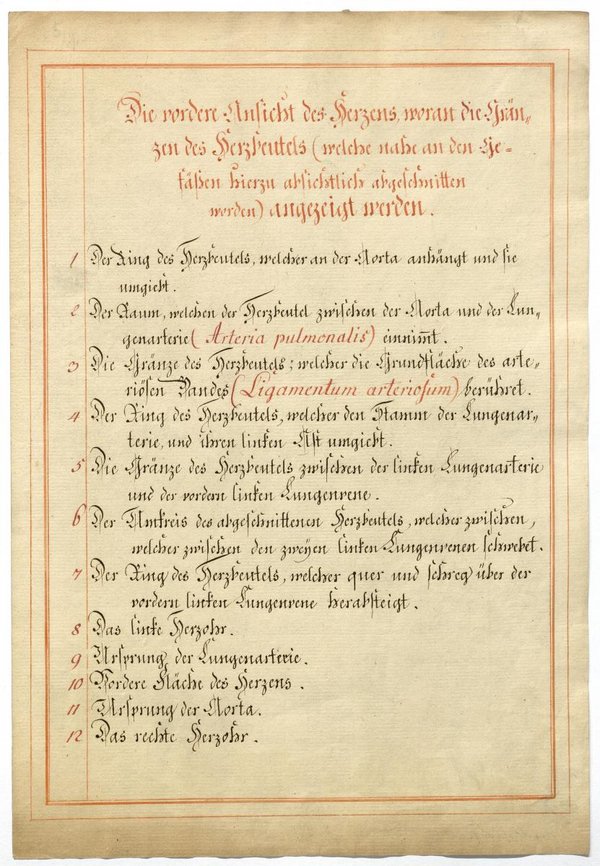 Die vordere Ansicht des Herzens, woran die Grän-
zen des Herzbeutels (welche nahe an den Ge-
fäßen hierzu absichtlich abgeschnitten
worden) angezeigt werden.
1 Der Ring des Herzbeutels, welcher an der Aorta anhängt und sie
umgiebt.
2 Der Raum, welchen der Herzbeutel zwischen der Aorta und der Lun-
genarterie (Arteria pulmonalis) einnim̅t.
3 Die Gränze des Herzbeutels; welcher die Grundfläche des arte-
riösen Bandes (Ligamentum arteriosum) berühret.
4 Der Ring des Herzbeutels, welcher den Stamm der Lungenar-
terie, und ihren linken Ast umgiebt.
5 Die Gränze des Herzbeutels zwischen der linken Lungenarterie
und der vordern linken Lungenvene.
6 Der Umkreis des abgeschnittenen Herzbeutels, welcher zwischen,
welcher zwischen den zweyen linken Lungenvenen schwebet.
7 Der Ring des Herzbeutels, welcher quer und schreg über der
vordern linken Lungenvene herabsteigt.
8 Das linke Herzohr.
9 Ursprung der Lungenarterie.
10 Vordere Fläche des Herzens.
11 Ursprung der Aorta.
12 Das rechte Herzohr.